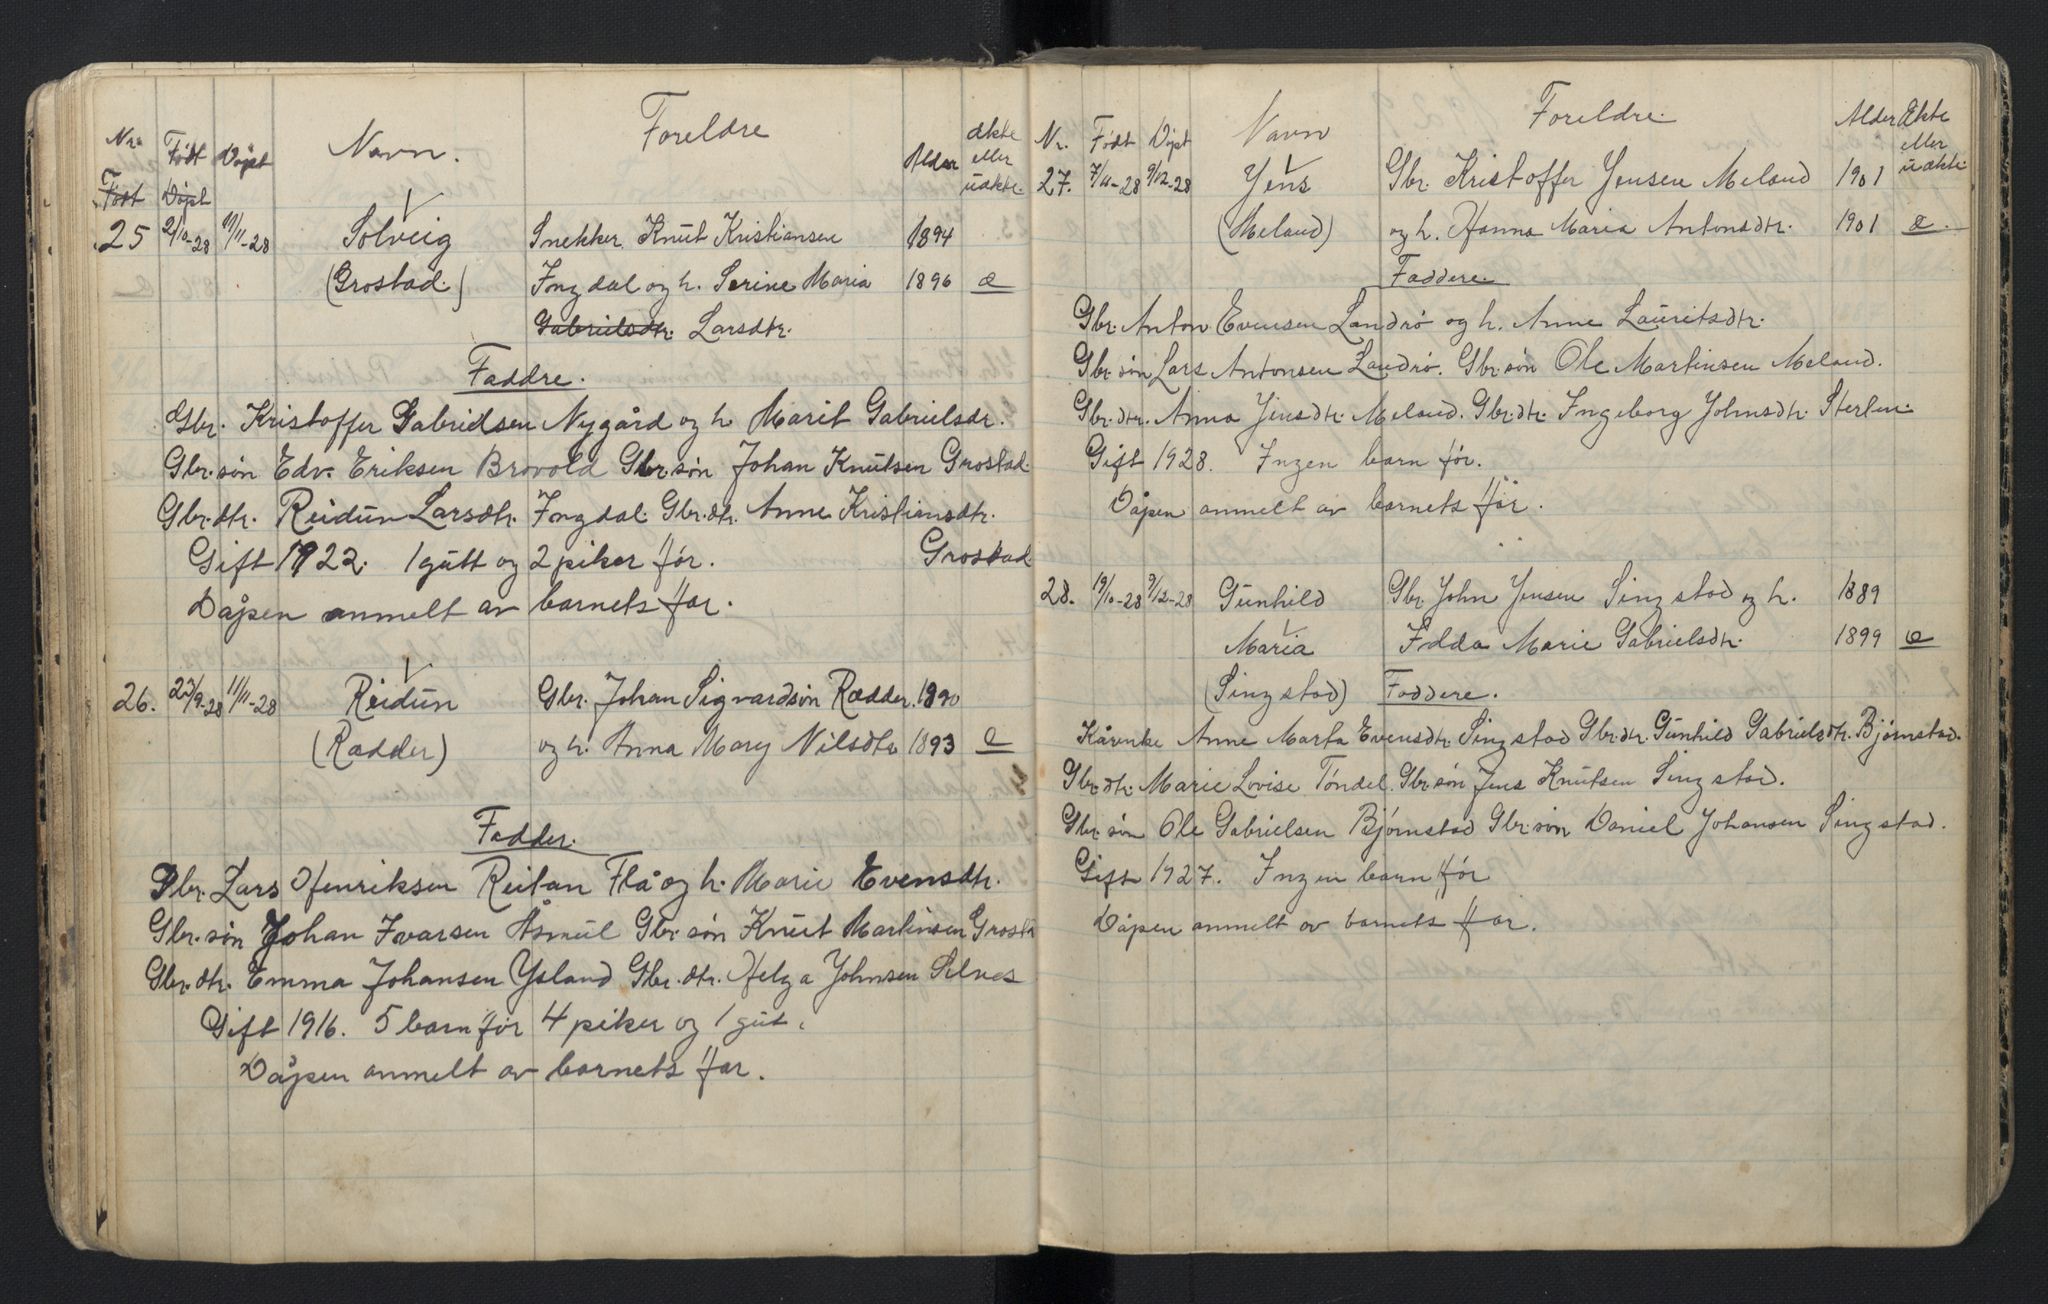 Nr. Født Døpt Navn. Foreldre Alder ækte eller uækte.
Født Døpt
25 2/10-28 11/11-28 Solveig Snekker Knut Kristiansen 1894
(Grostad.) Ingdal og h. Serine Maria 1896 æ
Gabrielsdtr. Larsdtr.
Faddre.
Gbr. Kristoffer Gabrielsen Nygård og h Marit Gabrielsdr.
Gbr.søn Edv. Eriksen Brovold Gbr.søn Johan Knutsen Grostad.
Gbr.dtr. Reidun Larsdtr. Ingdal. Gbr.dtr. Anne Kristiansdtr.
Gift 1922. 1 gutt og 2 piker før. Grostad
Dåpen anmelt av barnets far.
26. 11/11-28 Reidun Gbr. Johan Sigvardsøn Rædder. 1890
(Rædder) og h. Anna Mary Nilsdtr 1893 e
Fadder.
Gbr. Lars Henriksen Reitan Flå og h. Marie Evensdtr.
Gbr.søn Johan Ivarsen Åsmul Gbr.søn Knut Martinsen Grosta
Gbr.dtr. Emma Johansen Ysland Gbr.dtr. Helga Johnsen Selnes
Gift 1916. 5 barn før 4 piker og 1 gut.
Dåpen anmelt av barnets far.
Nr. Født Døpt Navn Foreldre. Alder Ækte eller uækte
27. 7/11-28 9/12-28 Jens Gbr. Kristoffer Jensen Meland 1901
(Meland) og h. Hanna Maria Antonsdtr. 1901 æ.
Faddere.
Gbr. Anton Evensen Landrø og h. Anne Lauritsdtr.
Gbr.søn Lars Antonsen Landrø. Gbr.søn Ole Martinsen Meland.
Gbr.dtr. Anna Jensdtr. Meland. Gbr.dtr. Ingeborg Johnsdtr. Sterten.
Gift 1928. Ingen barn før.
Dåpen anmelt av barnets far.
28. 19/10-28 9/12-28 Gunhild Gbr. John Jensen Singstad og h. 1889
Maria Hodda Marie Gabrielsdtr. 1899 e
(Singstad) Faddere.
Kårenke Anne Marta Evensdtr Singstad Gbr.dtr. Gunhild Gabrielsdtr. Bjørnstad.
Gbr.dtr. Marie Lovise Tøndel. Gbr.søn Jens Knutsen Singstad.
Gbr.søn Ole Gabrielsen Bjørnstad Gbr.søn Daniel Johansen Singstad.
Gift 1927. Ingen barn før
Dåpen anmelt av barnets far.